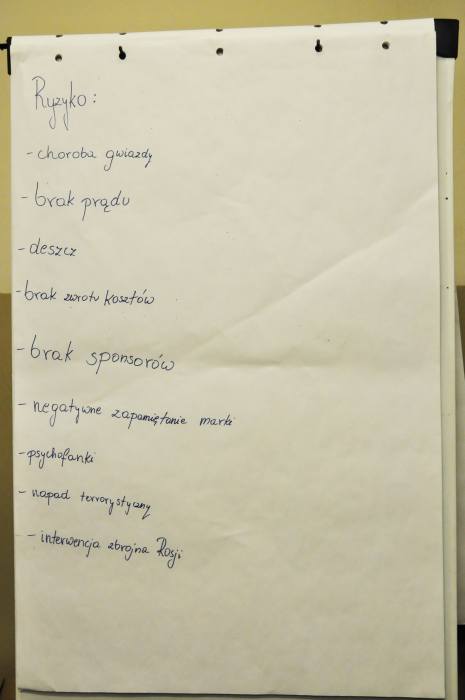 Ryzyko:
- choroba gwiazdy
- brak prądu
- deszcz
- brak zwrotu kosztów
- brak sponsorów
- negatywne zapamiętanie marki
- psychofanki
- napad terrorystyczny
- interwencja zbrojna Rosji